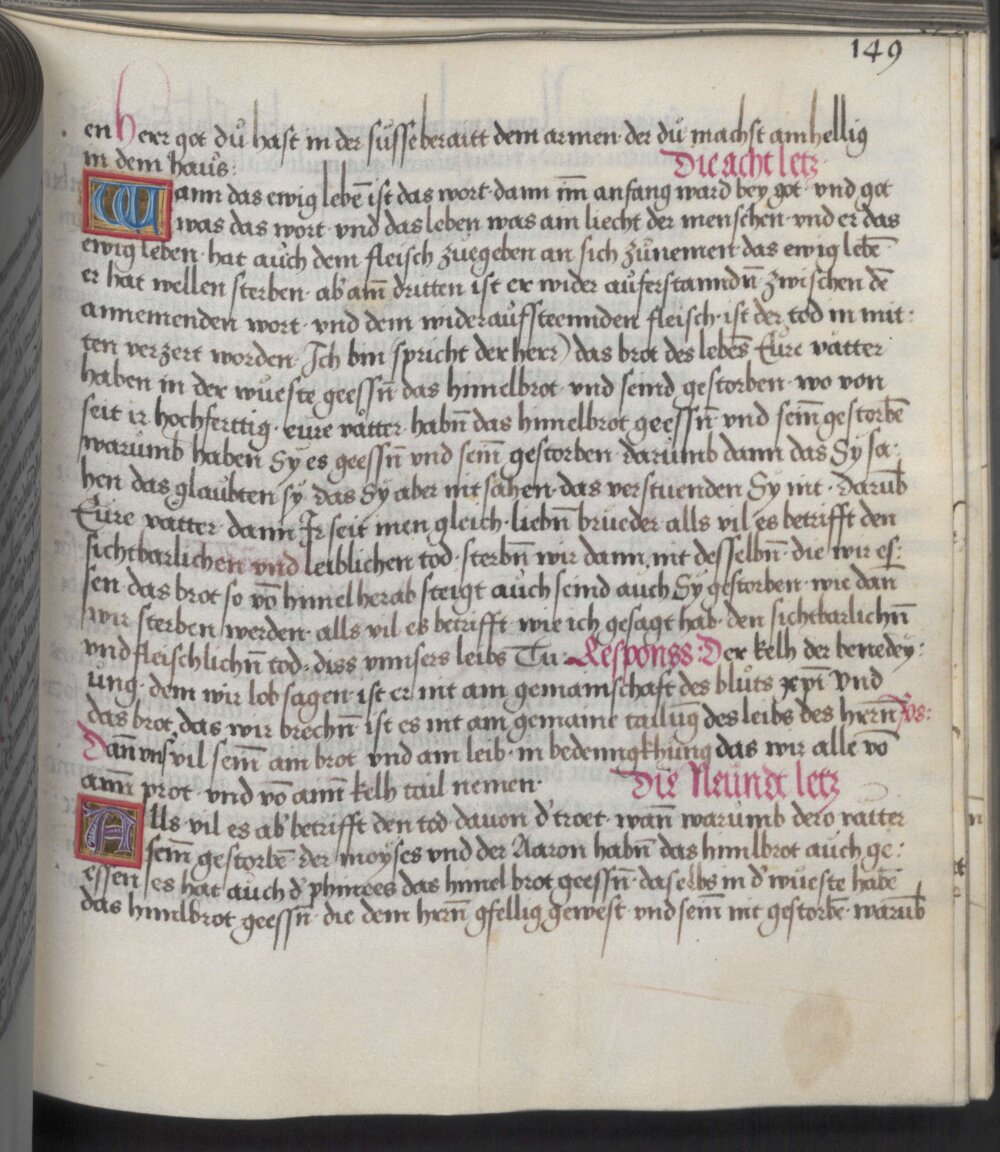 149
en Herr got du̇ hast in der su̇sse beraitt dem armen · der du̇ machst amhellig
in dem hau̇s : Die acht letz
Wann das ewig lebē ist das wort · dann im̄ anfang ward bey got · vnd got
was das wort · vnd das leben was am liecht der menschen · vnd er das
ewig leben · hat au̇ch dem fleisch zuegeben an sich zu̇nemen · das ewig lebē
er hat wellen sterben · ab' am̄ dritten ist er wider au̇ferstanndn̄ zwischen dē
annemenden wort · vnd dem widerau̇fsteennden fleisch · ist der tod in mit :
ten verzert worden · Ich bin spricht der herr) das brot des lebēs Eu̇re vätter
haben in der wu̇este geessn̄ das himelbrot · vnd seind gestorben · wo von
seit ir hochferttig · eure vätter · habn̄ das himelbrot geessn̄ vnd seim̄ gestorbē
warumb haben Sy es geessn̄ vnd seim̄ gestorben · daru̇mb dann das Sy sa :
hen das glau̇bten sy · das Sy aber nit sahen · das verstuenden Sy nit · daru̅b
Eu̇re vatter · dann Ir seit inen gleich · liebn̄ brueder alls vil es betrifft den
sichtbarlichen vnd leiblichen tod · sterbn̄ wir dann nit desselbn̄ · die wir es :
sen · das brot so vō himel herab steigt au̇ch seind au̇ch Sy gestorben · wie dan̄
wir sterben werden · alls vil es betrifft · wie ich gesagt hab · den sichtbarlichn̄
vnd fleischlichn̄ tod · diss vnnsers leibs Tu · Responss : Der kelh der benedey :
u̇ng · dem wir lob sagen · ist er nit am gemainschaft des blu̇ts xp̄i Vnd
das brot, das wir brechn̄ ist es nit am gemaine tailu̅g des leibs des hern̄ V̄s :
Dan̄ vns' vil seim̄ am brot · vnd am leib · in bedenngkhung das wir alle vō
am̄ prot · vnd vō ann̄ kelh tail nemen · Die Neündt letz
Alls vil es ab' betrifft den tod dauon d' troet · wan̄ warumb dero vatter
seim̄ gestorbē · der moyses vnd der Aaron habn̄ das himlbrot auch ge :
essen es hat au̇ch d' phinees das himel brot geessn̄ · daselbs in d' wu̇este habē
das himlbrot geessn̄ · die dem hern̄ gfellig gewest · vnd seim̄ nit gestorbē · waru̅b